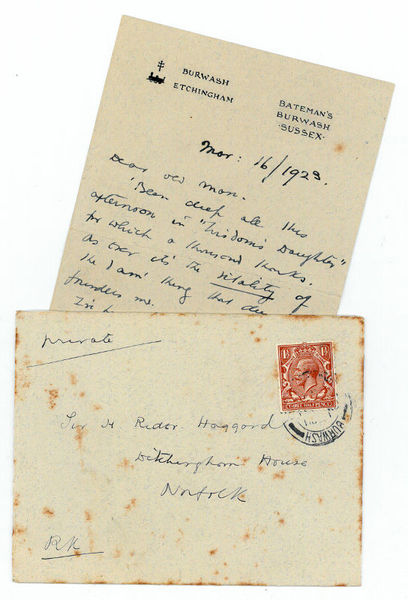 BURWASH
ETCHINGHAM
BATEMAN'S
BURWASH
·SUSSEX·
Mar: 16/1923.
Dear old man.
'Been deep all this
afternoon in "Wisdom's Daughter"
for which a thousand thanks.
As ever it's the vitality of
the
thing that
founders me.
private
1½ 1½
THREE HALFPENCE
BURWASH
Sir H Rider Haggard
Ditchingham House
Norfolk
RK